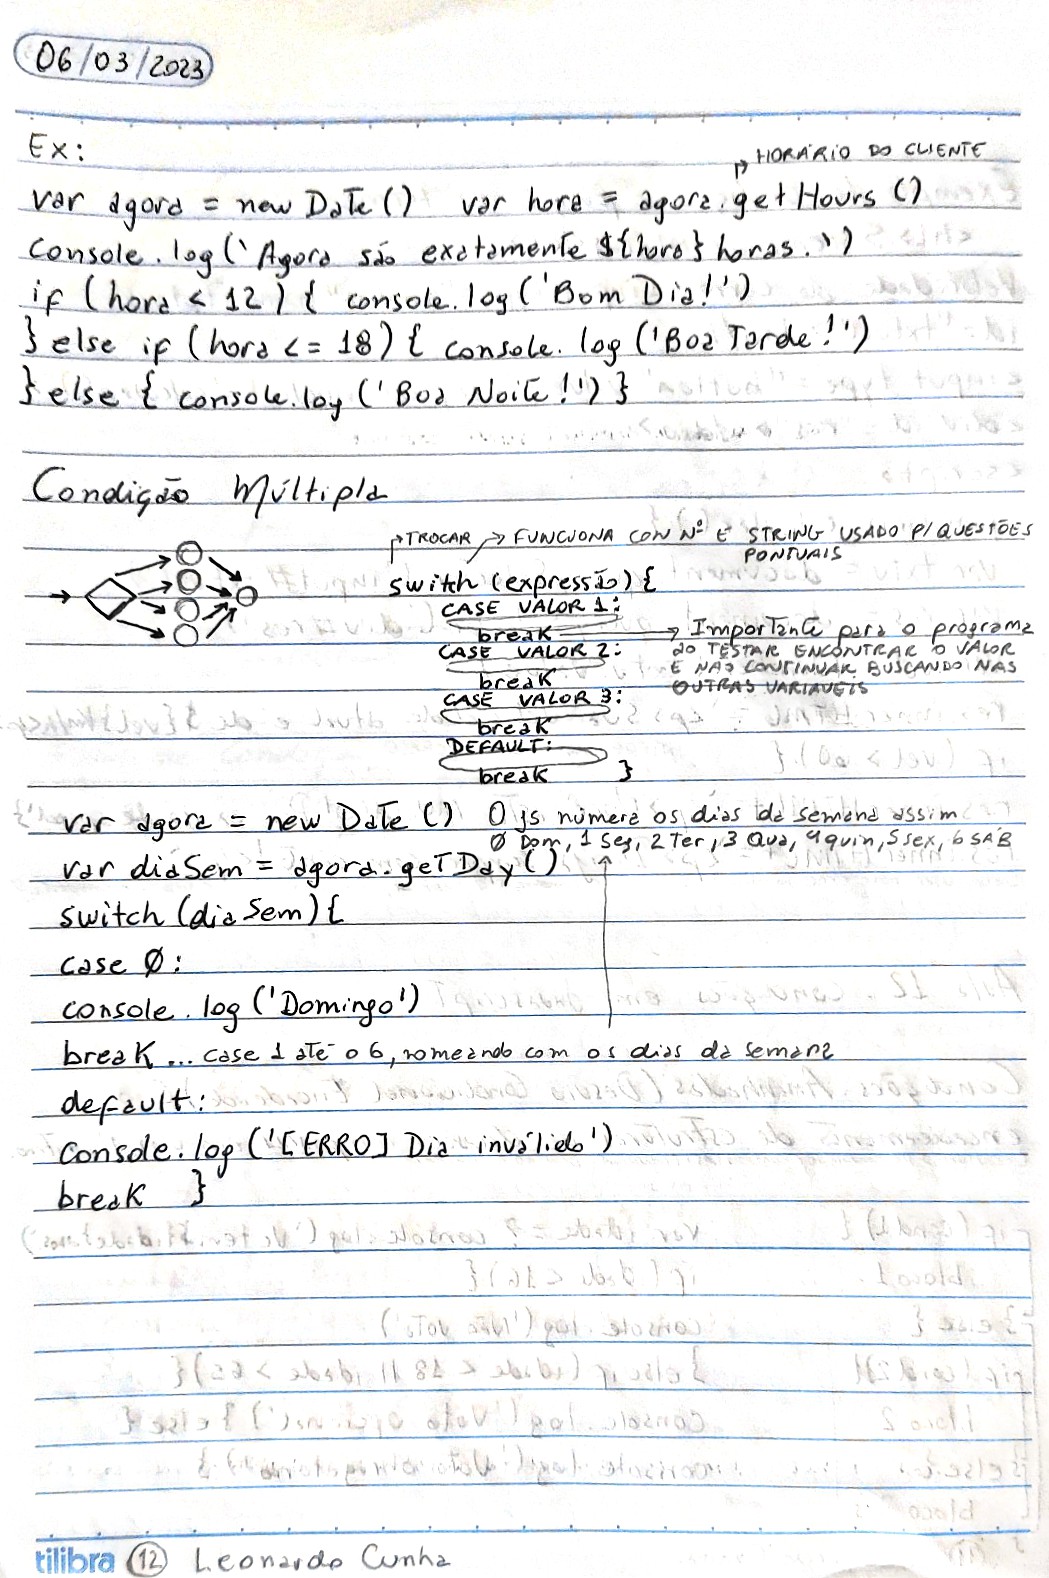 06/03/2023
Ex:
HORÁRIO DO CLIENTE
var agora = new Date () var hora = agora.getHours ()
Console.log(`Agora são exatamente ${hora} horas.`)
if (hora < 12) { console.log('Bom Dia!')
} else if (hora <= 18) { console.log('Boa Tarde!')
} else { console.log('Boa Noite!') }
Condição Múltipla
TROCAR → FUNCIONA COM Nº E STRING USADO P/ QUESTÕES
PONTUAIS
switch (expressão) {
CASE VALOR 1:
break → Importante para o programa
CASE VALOR 2: ao TESTAR ENCONTRAR O VALOR
E NÃO CONTINUAR BUSCANDO NAS
break
CASE VALOR 3: OUTRAS VARIAVEIS
break
DEFAULT:
break }
var agora = new Date () O js número os dias da semana assim
0 Dom, 1 Seg, 2 Ter, 3 Qua, 4 quin, 5 sex, 6 SAB
var diaSem = agora.getDay ()
switch (diaSem) {
case 0:
console.log('Domingo')
break ... case 1 até o 6, nomeando com os dias da semana
default:
Console.log('[ERRO] Dia inválido')
break }
tilibra 12 Leonardo Cunha